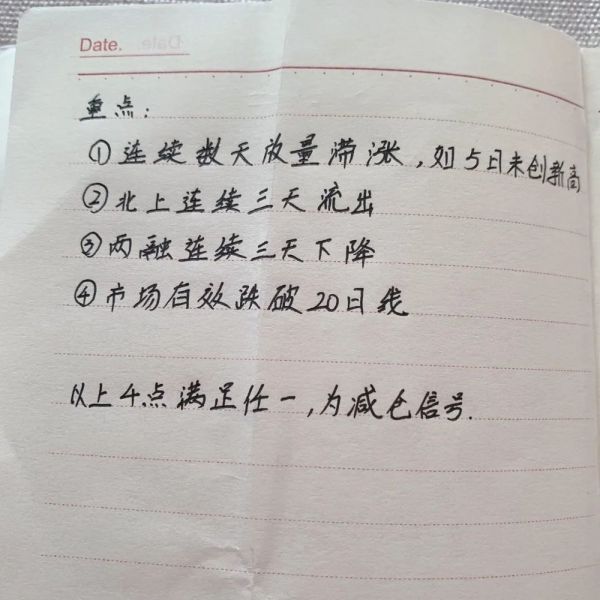 Date.
重点:
①连续数天放量滞涨,如5日未创新高
②北上连续三天流出
③两融连续三天下降
④市场有效跌破20日线
以上4点满足任一,为减仓信号.